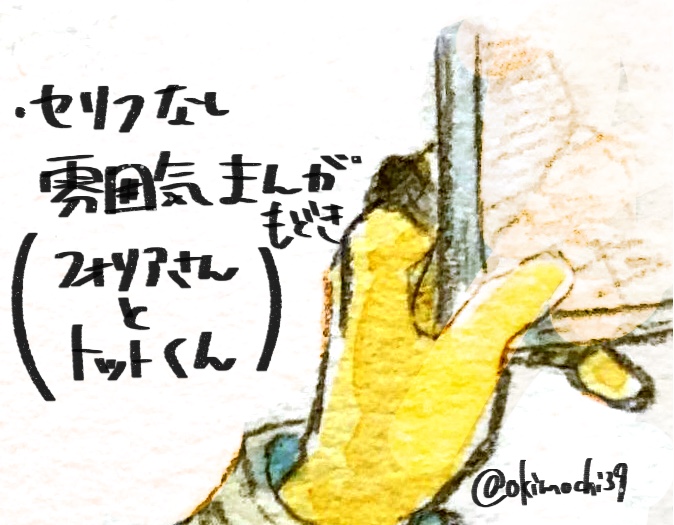 ・セリフなし
雰囲気まんが
もどき
(フォリアさん
と
トットくん)
@okimochi39